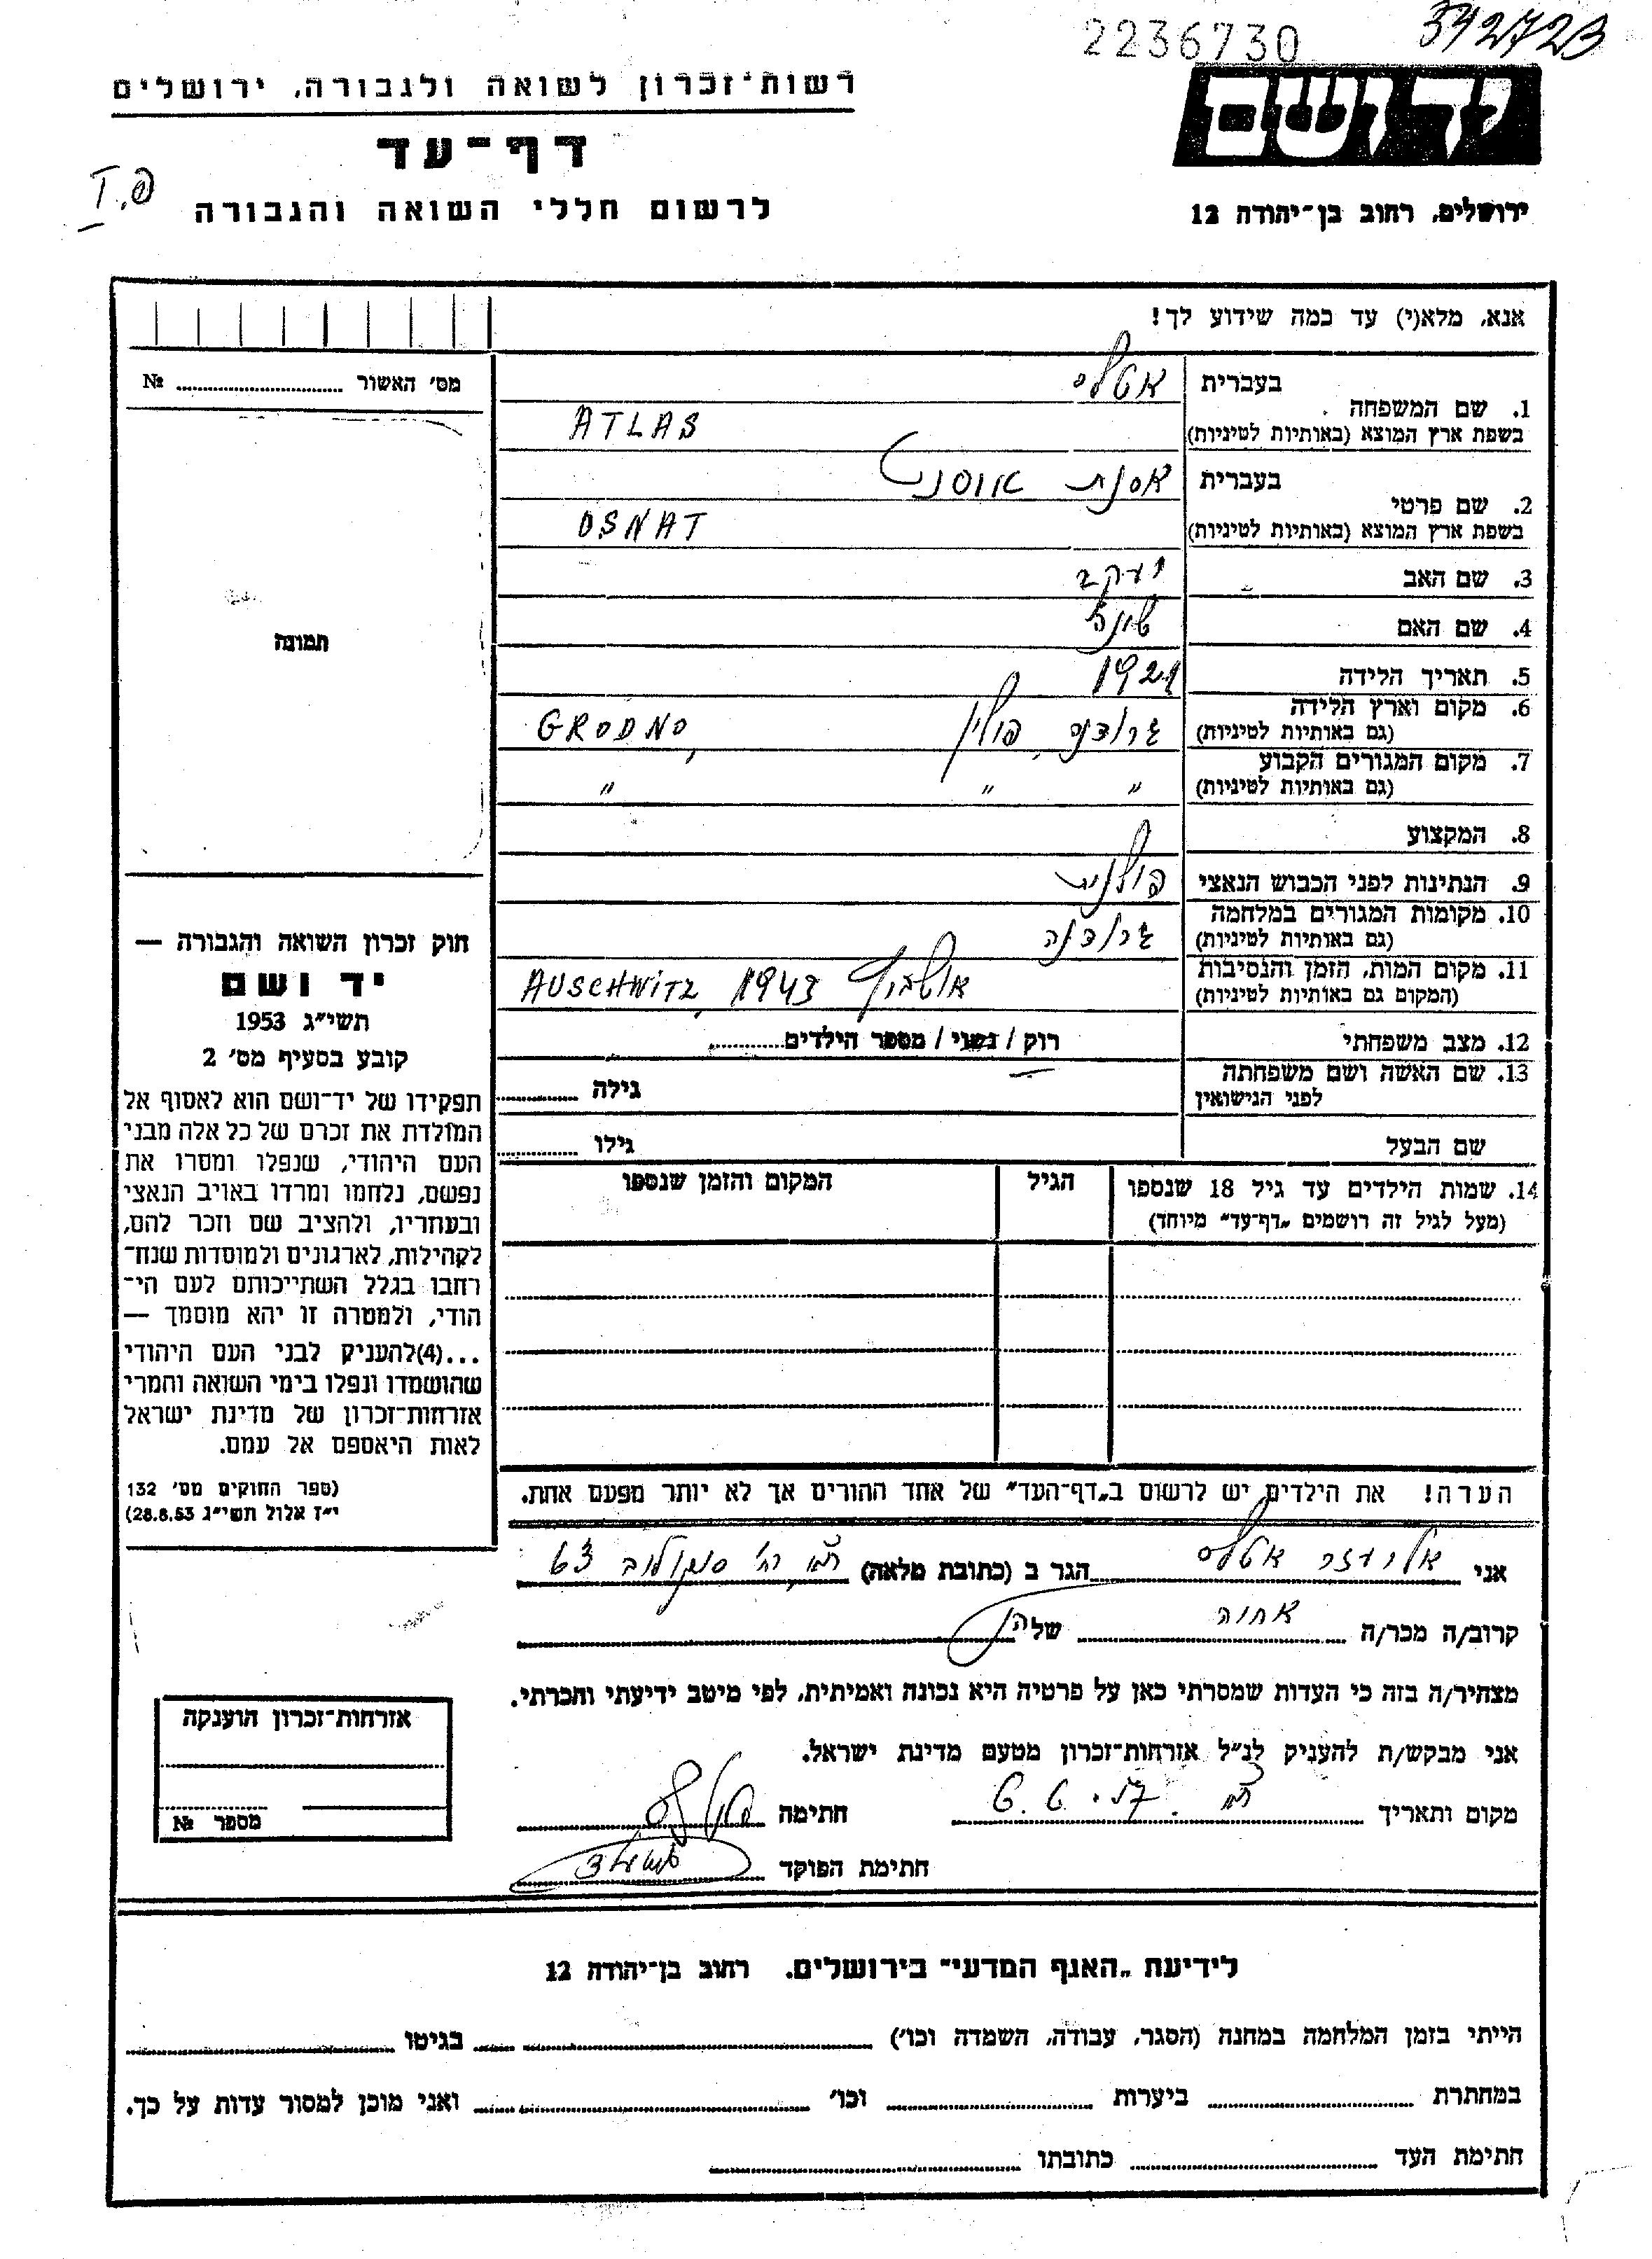 2236730
342723
רשות־זכרון לשואה ולגבורה, ירושלים
דף־עד
לרשום חללי השואה והגבורה
יד ושם
ירושלים, רחוב בן־יהודה 12
אנא, מלא(י) עד כמה שידוע לך!
מס׳ האשור № ........
1. שם המשפחה
בעברית אטלס
בשפת ארץ המוצא (באותיות לטיניות) ATLAS
2. שם פרטי
בעברית אסנת אוסנט
בשפת ארץ המוצא (באותיות לטיניות) OSNAT
3. שם האב יעקב
4. שם האם
5. תאריך הלידה 1921
6. מקום וארץ הלידה גרודנה, פולין GRODNO,
(גם באותיות לטיניות)
7. מקום המגורים הקבוע " " "
(גם באותיות לטיניות)
8. המקצוע
9. הנתינות לפני הכבוש הנאצי פולנית
10. מקומות המגורים במלחמה גרודנה
(גם באותיות לטיניות)
11. מקום המות, הזמן והנסיבות אושביץ 1943 AUSCHWITZ,
(המקום גם באותיות לטיניות)
12. מצב משפחתי רוק / נשני / מספר הילדים........
13. שם האשה ושם משפחתה
לפני הנישואין גילה ........
שם הבעל גילו ........
14. שמות הילדים עד גיל 18 שנספו הגיל המקום והזמן שנספו
(מעל לגיל זה רושמים „דף־עד" מיוחד)
הערה! את הילדים יש לרשום ב„דף־העד" של אחד ההורים אך לא יותר מפעם אחת.
תמונה
חוק זכרון השואה והגבורה —
יד ושם
תשי״ג 1953
קובע בסעיף מס׳ 2
תפקידו של יד־ושם הוא לאסוף אל
המולדת את זכרם של כל אלה מבני
העם היהודי, שנפלו ומסרו את
נפשם, נלחמו ומרדו באויב הנאצי
ובעוזריו, ולהציב שם וזכר להם,
לקהילות, לארגונים ולמוסדות שנח־
רבו בגלל השתייכותם לעם הי־
הודי, ולמטרה זו יהא מוסמך —
...(4)להעניק לבני העם היהודי
שהושמדו ונפלו בימי השואה והמרי
אזרחות־זכרון של מדינת ישראל
לאות היאספם אל עמם.
(ספר החוקים מס׳ 132
י״ז אלול תשי״ג 28.8.53)
אני אליעזר אטלס הגר ב (כתובת מלאה) רח׳ סוקולוב 63
קרוב/ה מכר/ה אחיה של
מצהיר/ה בזה כי העדות שמסרתי כאן על פרטיה היא נכונה ואמיתית, לפי מיטב ידיעתי והכרתי.
אני מבקש/ת להעניק לנ״ל אזרחות־זכרון מטעם מדינת ישראל.
מקום ותאריך חתימה
חתימת הפוקד
אזרחות־זכרון הוענקה
מספר №
לידיעת „האגף המדעי" בירושלים, רחוב בן־יהודה 12
הייתי בזמן המלחמה במחנה (הסגר, עבודה, השמדה וכו׳) ........ בגיטו ........
במחתרת ........ ביערות ........ וכו׳ ........ ואני מוכן למסור עדות על כך.
חתימת העד ........ כתובתו ........